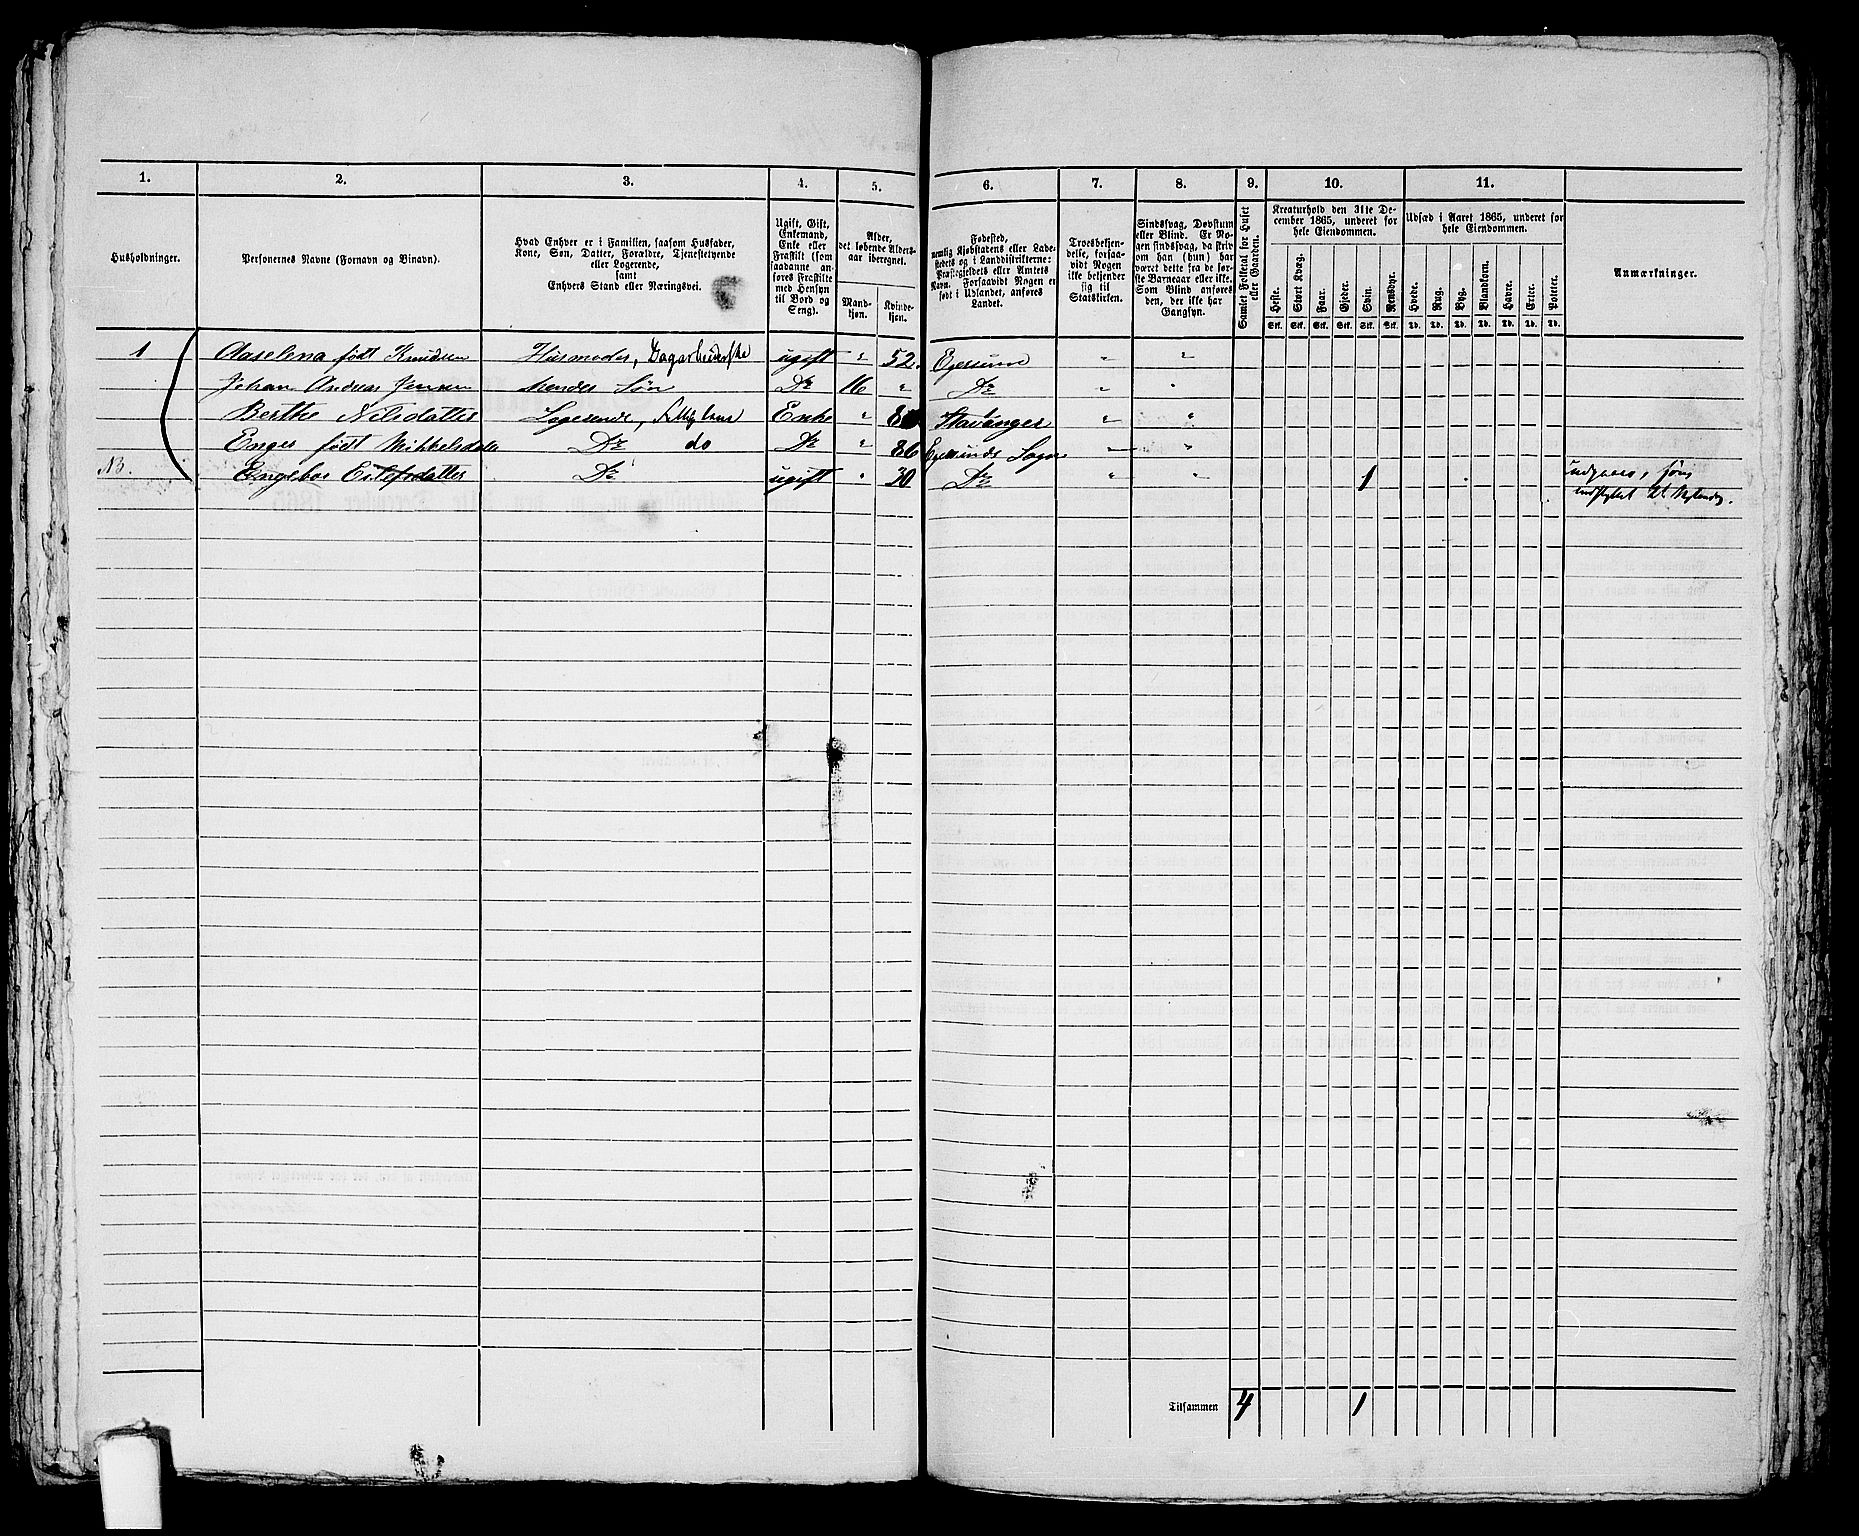 1. 2. 3. 4. 5. 6. 7. 8. 9. 10. 11.
Husholdninger.
Personernes Navne (Fornavn og Binavn).
Hvad Enhver er i Familien, saasom Husfader,
Kone, Søn, Datter, Forældre, Tjenestetyende
eller Logerende,
samt
Enhvers Stand eller Næringsvei.
Ugift, Gift,
Enkemand,
Enke eller
Fraskilt (som
saadanne an-
føres Fraskilte
med Hensyn
til Bord og
Seng).
Alder,
det løbende Alders-
aar iberegnet.
Mand-
kjøn.
Kvinde-
kjøn.
Fødested,
nemlig Kjøbstadens eller Lade-
stedets og i Landdistrikterne:
Præstegjeldets eller Amtets
Navn. Forsaavidt Nogen er
født i Udlandet, anføres
Landet.
Troesbekjen-
delse, forsaa-
vidt Nogen
ikke bekjender
sig til
Statskirken.
Sindssvag, Døvstum
eller Blind. Er No-
gen sindssvag, da skriv
om han (hun) har
været dette fra de før-
ste Barneaar eller ikke.
Som Blind anføres
den, der ikke har
Gangsyn.
Samlet Folketal for Huset
eller Gaarden.
Kreaturhold den 31te De-
cember 1865, underet for
hele Eiendommen.
Heste. Stort Kvæg. Faar. Gjeder. Svin. Rensdyr.
Stk. Stk. Stk. Stk. Stk. Stk.
Udsæd i Aaret 1865, underet for
hele Eiendommen.
Hvede. Rug. Byg. Blandkorn. Havre. Erter. Poteter.
Td. Td. Td. Td. Td. Td. Td.
Anmærkninger.
1 Aaselena født Knudsen Husmoder, Dagarbeiderske ugift " 52. Egersund " "
Johan Andreas Jensen hendes Søn Do 16 " Do " "
Berthe Nilsdatter Logerende, Enke " Stavanger " "
Enger født Mikkelsdatter Do do Do " 86 Egersunds Sogn " "
NB. Engebor Do ugift " 30 Do " " 1
Tilsammen 4 1